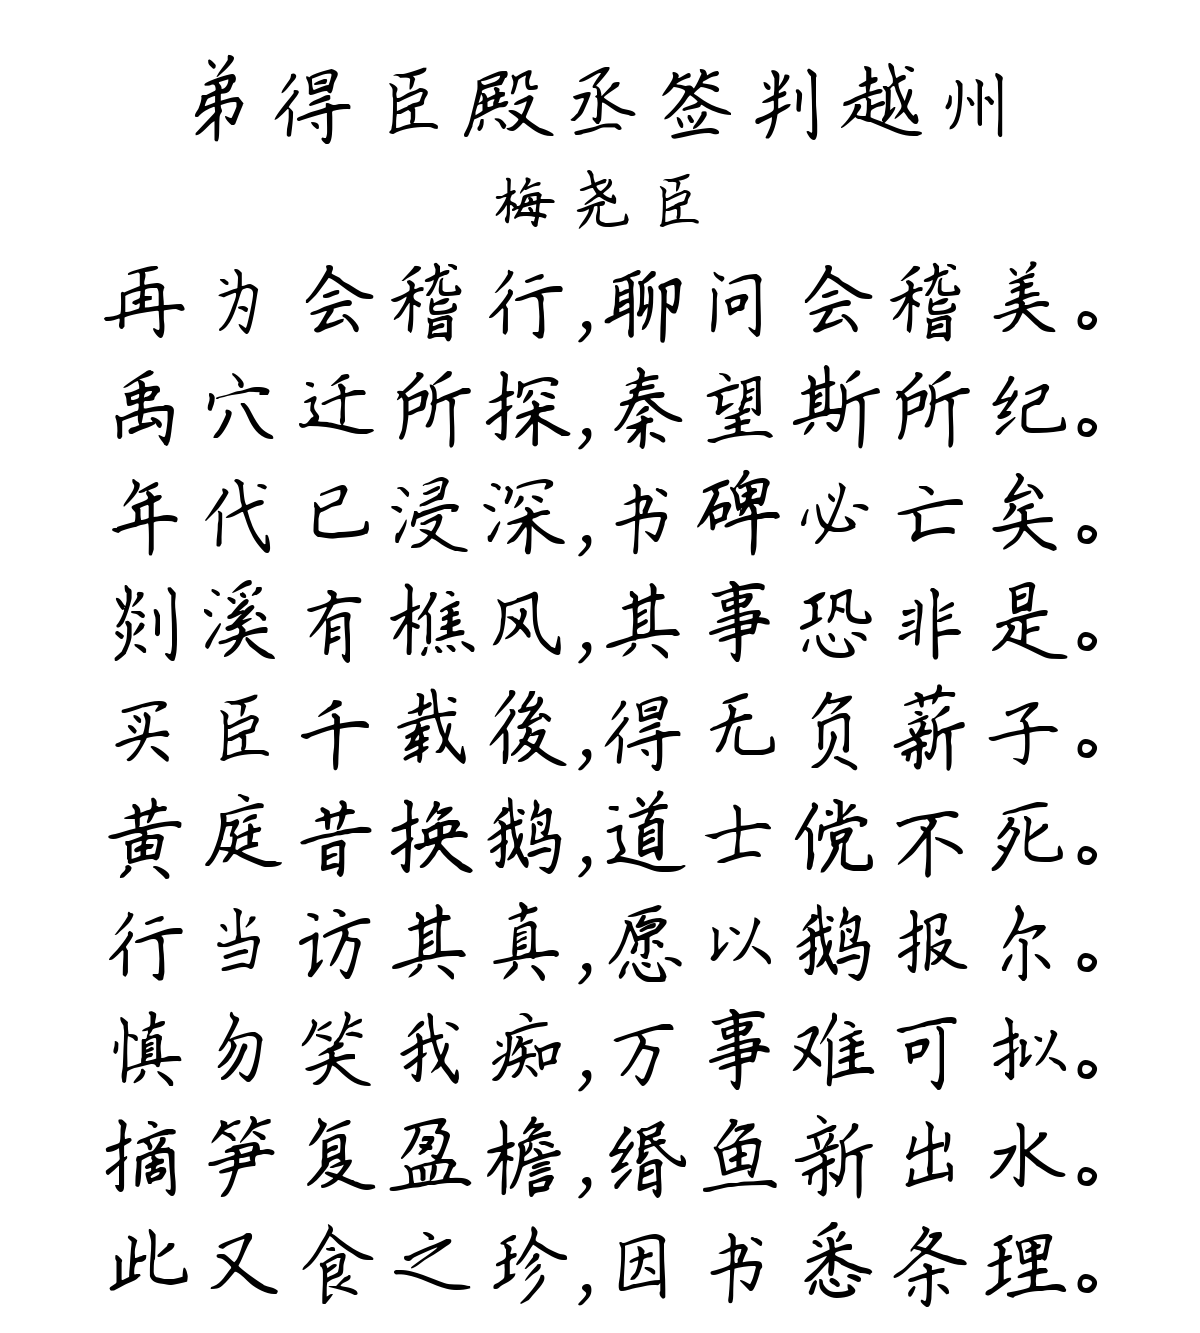 弟得臣殿丞签判越州
梅尧臣
再为会稽行,聊问会稽美。
禹穴迁所探,秦望斯所纪。
年代已浸深,书碑必亡矣。
剡溪有樵风,其事恐非是。
买臣千载後,得无负薪子。
黄庭昔换鹅,道士傥不死。
行当访其真,愿以鹅报尔。
慎勿笑我痴,万事难可拟。
摘笋复盈檐,缗鱼新出水。
此又食之珍,因书悉条理。